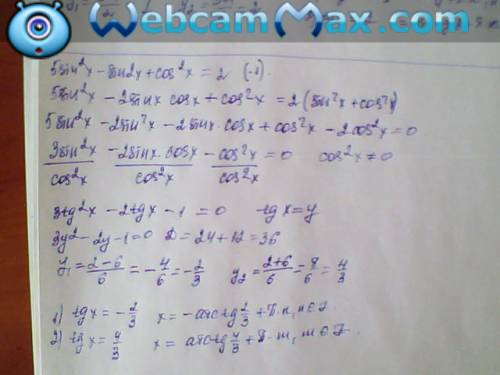 WebcamMax.com
5sin²x - sin2x + cos²x = 2 (-1).
5sin²x - 2sinx cosx + cos²x = 2·(sin²x + cos²x)
5sin²x - 2sin²x - 2sinx·cosx + cos²x - 2cos²x = 0
3sin²x/cos²x - 2sinx·cosx/cos²x - cos²x/cos²x = 0 cos²x ≠ 0
3tg²x - 2tgx - 1 = 0 tgx = y
3y² - 2y - 1 = 0 D = 24 + 12 = 36
y₁ = (2-6)/6 = -4/6 = -2/3 y₂ = (2+6)/6 = 8/6 = 4/3
1) tgx = -2/3 x = -arctg 2/3 + π·n, n∈Z.
2) tgx = 4/3 x = arctg 4/3 + π·m, m∈Z.